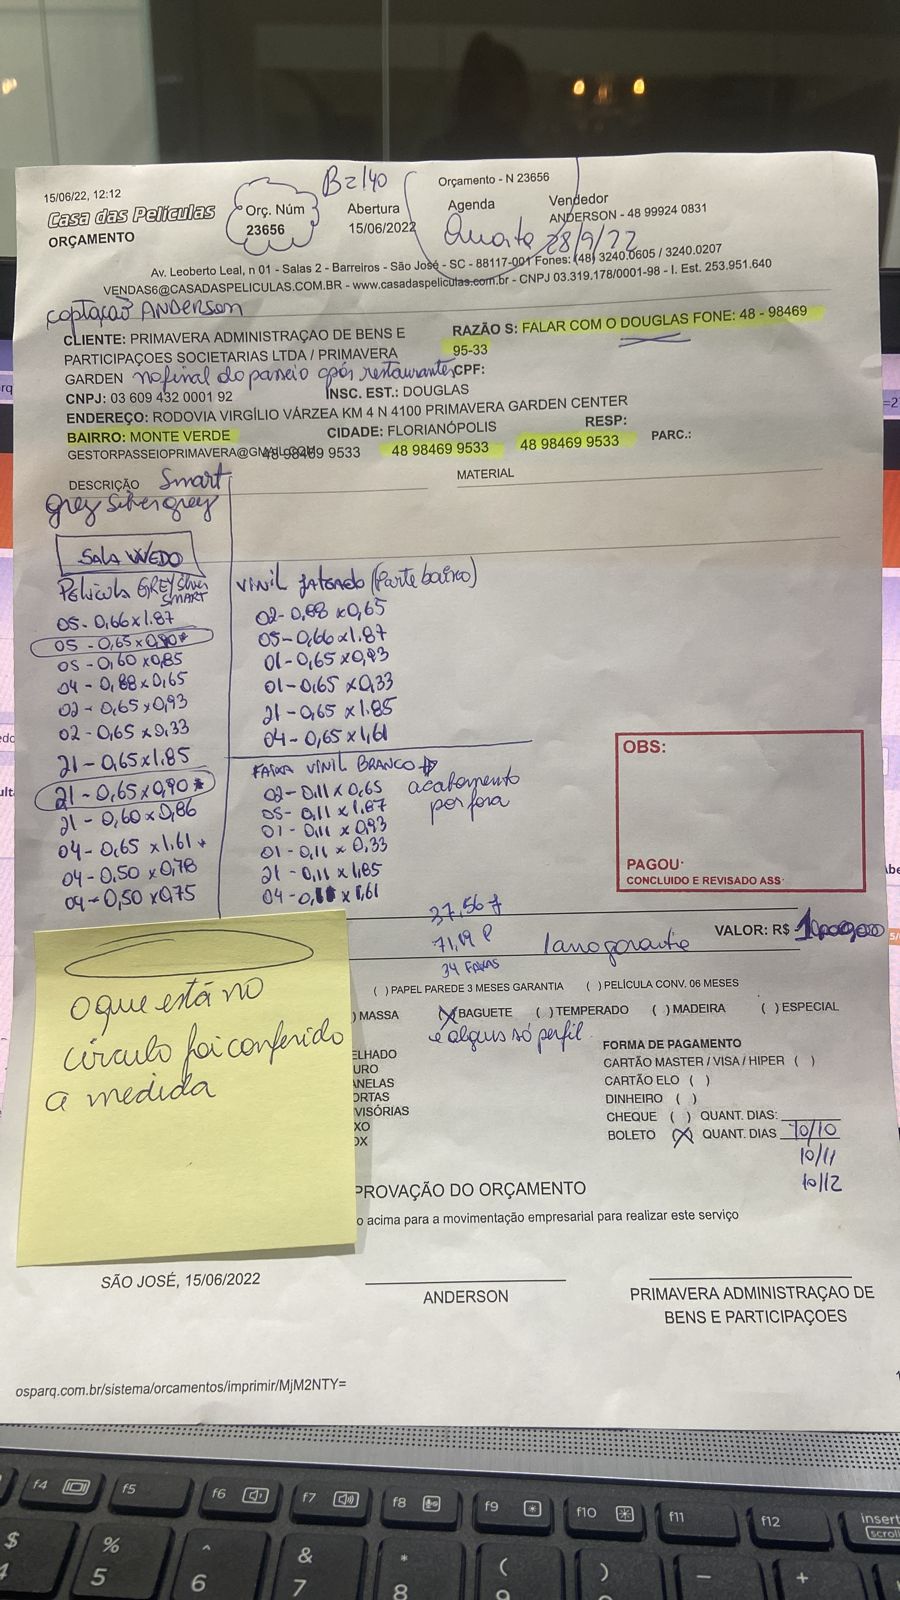 15/06/22, 12:12
Orçamento - N 23656
B=140
Casa das Películas
ORÇAMENTO
Orç. Núm
23656
Abertura
15/06/2022
Agenda
Quarta 28/9/22
Vendedor
ANDERSON - 48 99924 0831
Av. Leoberto Leal, n 01 - Salas 2 - Barreiros - São José - SC - 88117-001 Fones: (48) 3240.0605 / 3240.0207
VENDAS6@CASADASPELICULAS.COM.BR - www.casadaspeliculas.com.br - CNPJ 03.319.178/0001-98 - I. Est. 253.951.640
captação ANDERSON
CLIENTE: PRIMAVERA ADMINISTRAÇAO DE BENS E
PARTICIPAÇOES SOCIETARIAS LTDA / PRIMAVERA
GARDEN no final do passeio após restaurantes
RAZÃO S: FALAR COM O DOUGLAS FONE: 48 - 98469
95-33
CPF:
CNPJ: 03 609 432 0001 92
INSC. EST.: DOUGLAS
ENDEREÇO: RODOVIA VIRGÍLIO VÁRZEA KM 4 N 4100 PRIMAVERA GARDEN CENTER
BAIRRO: MONTE VERDE
CIDADE: FLORIANÓPOLIS
RESP:
PARC.:
GESTORPASSEIOPRIMAVERA@GMAIL.COM
48 98469 9533
48 98469 9533
48 98469 9533
DESCRIÇÃO Smart
MATERIAL
grey Silver grey
SALA WEDO
Película GREY Silver
SMART
05-0,66x1.87
05-0,65x0,90*
05-0,60x0,85
04-0,88x0,65
02-0,65x0,93
02-0,65x0,33
21-0,65x1.85
21-0,65x0,90*
21-0,60x0,86
04-0,65x1.61*
04-0,50x0,78
04-0,50x0,75
VINIL JATEADO (Parte baixo)
02-0,88x0,65
05-0,66x1.87
01-0,65x0,93
01-0,65x0,33
21-0,65x1.85
04-0,65x1,61
FAIXA VINIL BRANCO
02-0.11x0,65
05-0.11x1.87
01-0.11x0.93
01-0.11x0.33
21-0.11x1,85
04-0, x1,61
acabamento
por fora
OBS:
PAGOU·
CONCLUIDO E REVISADO ASS·
37,56 J
71,19 P
34 FAIXAS
1 ano garantia
VALOR: R$
( ) PAPEL PAREDE 3 MESES GARANTIA ( ) PELÍCULA CONV. 06 MESES
) MASSA (X) BAGUETE ( ) TEMPERADO ( ) MADEIRA ( ) ESPECIAL
e alguns só perfil
O que está no
círculo foi conferido
a medida
ELHADO
URO
ANELAS
ORTAS
VISÓRIAS
XO
OX
FORMA DE PAGAMENTO
CARTÃO MASTER / VISA / HIPER ( )
CARTÃO ELO ( )
DINHEIRO ( )
CHEQUE ( ) QUANT. DIAS:
BOLETO (X) QUANT. DIAS 10/10
10/11
10/12
PROVAÇÃO DO ORÇAMENTO
o acima para a movimentação empresarial para realizar este serviço
SÃO JOSÉ, 15/06/2022
ANDERSON
PRIMAVERA ADMINISTRAÇAO DE
BENS E PARTICIPAÇOES
osparq.com.br/sistema/orcamentos/imprimir/MjM2NTY=
f4 f5 f6 f7 f8 f9 f10 f11 f12 insert
$ % ^ & * ( ) - +
4 5 6 7 8 9 0